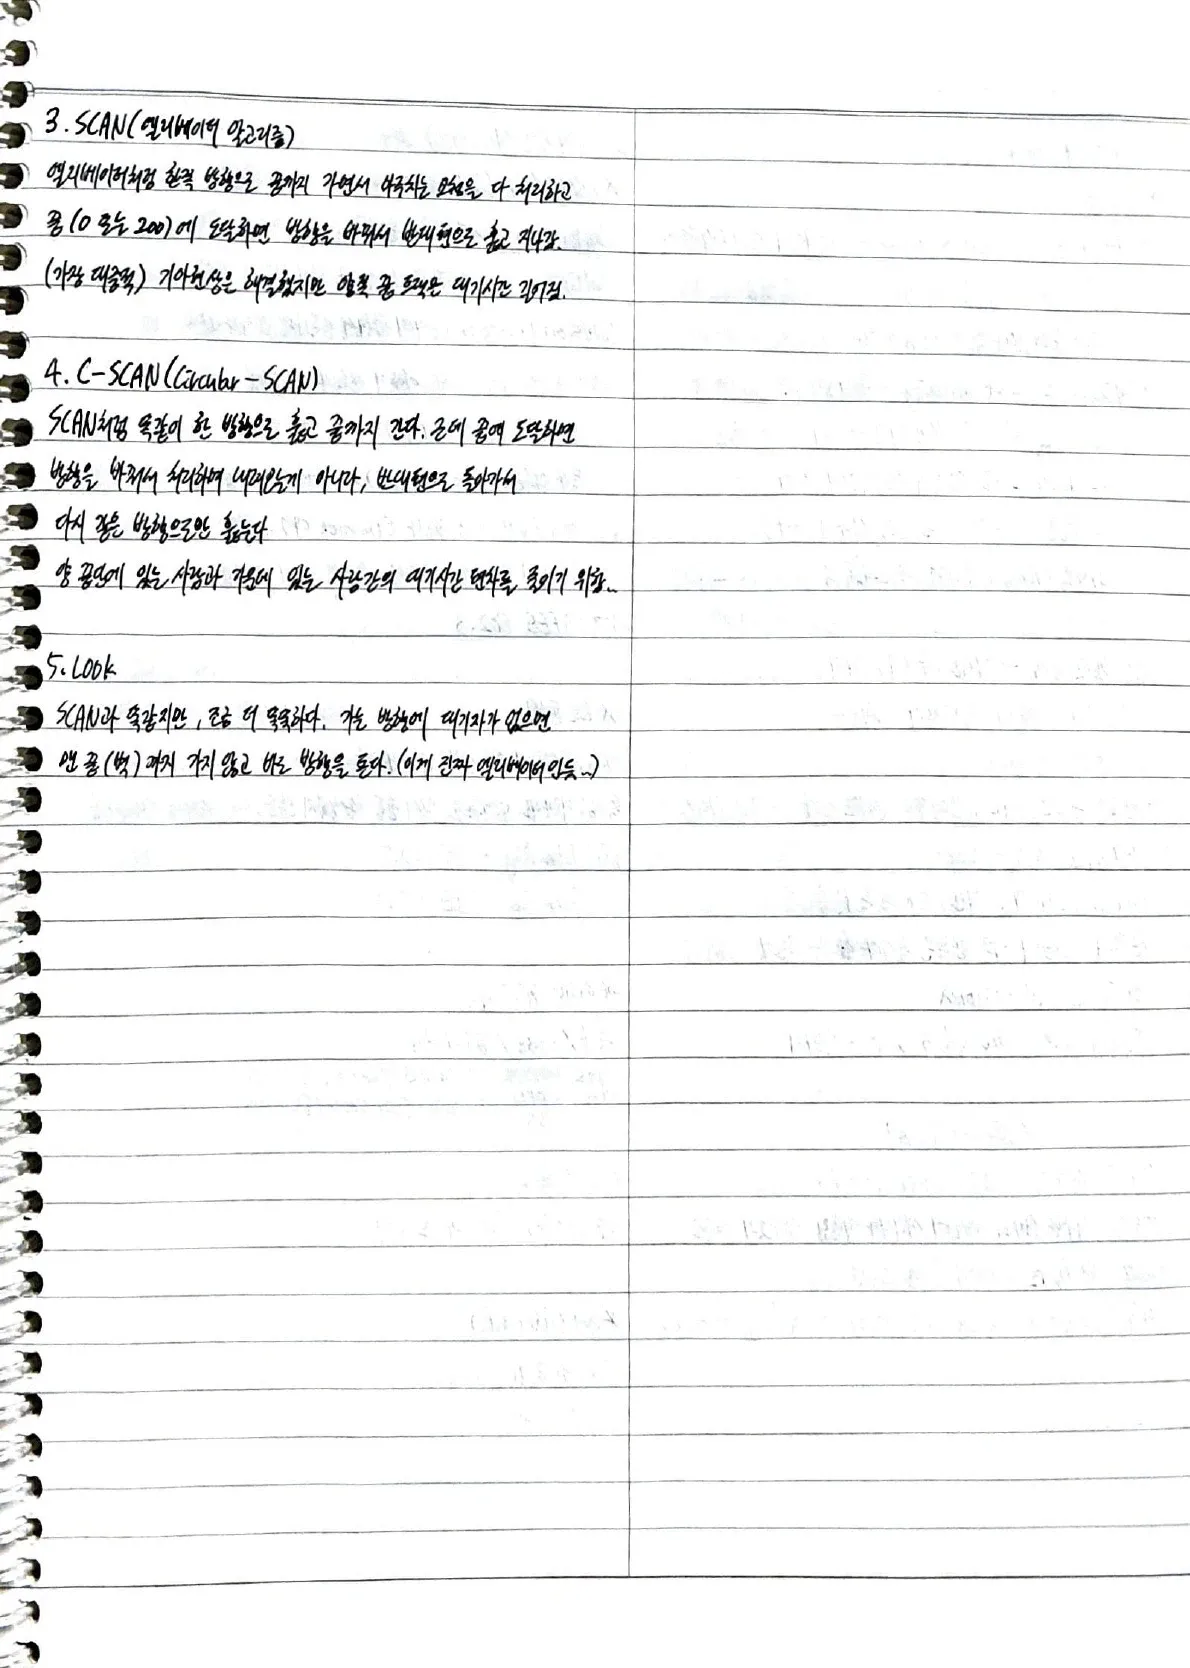 3. SCAN(엘리베이터 알고리즘)
엘리베이터처럼 한쪽 방향으로 끝까지 가면서 마주치는 요청을 다 처리하고
끝(0 또는 200)에 도달하면 방향을 바꿔서 반대편으로 훑고 지나감.
(가장 대중적) 기아현상은 해결했지만 양쪽 끝 트랙은 대기시간 길어짐.
4. C-SCAN(Circular-SCAN)
SCAN처럼 똑같이 한 방향으로 훑고 끝까지 간다. 근데 끝에 도달하면
방향을 바꿔서 처리하며 내려오는게 아니라, 반대편으로 돌아가서
다시 같은 방향으로만 훑는다
양 끝단에 있는 사람과 가운데 있는 사람간의 대기시간 편차를 줄이기 위함..
5. LOOK
SCAN과 똑같지만, 조금 더 똑똑하다. 가는 방향에 대기자가 없으면
맨 끝(벽)까지 가지 않고 바로 방향을 튼다. (이게 진짜 엘리베이터인듯..)